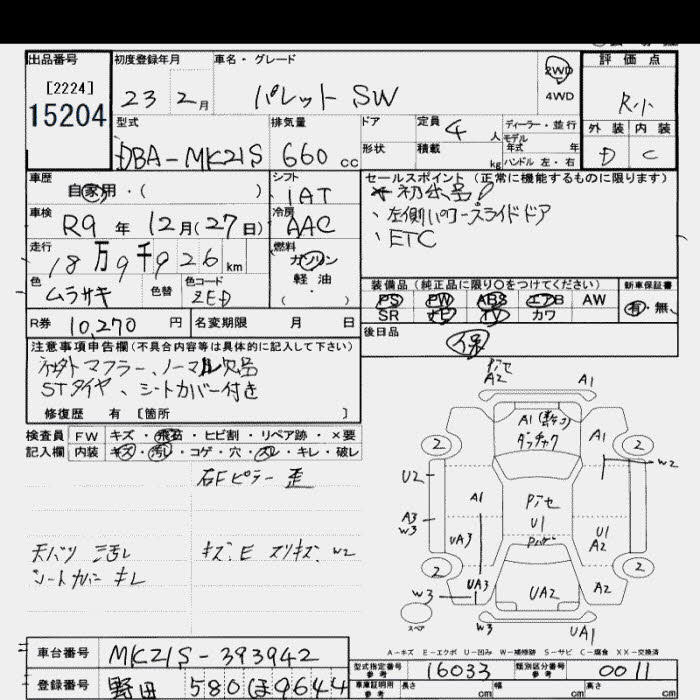 出品番号
[2224]
15204
初度登録年月
23 2月
車名・グレード
パレット SW
2WD
4WD
評価点
R小
外装 内装
D C
型式
DBA-MK21S
排気量
660 cc
ドア
形状
定員
4 人
積載
kg
ディーラー・並行
モデル
年式 年
ハンドル 左・右
車歴
自家用・( )
シフト
IAT
車検
R9年12月(27日)
冷房
AAC
走行
18万9千926km
燃料
ガソリン
軽油
( ・ )
色
ムラサキ
色替
色コード
ZED
R券
10,270円
名変期限 月 日
セールスポイント(正常に機能するものに限ります)
初出品!
、左側パワースライドドア
、ETC
装備品(純正品に限り〇をつけてください)
PS PW ABS エアB AW
SR ナビ TV カワ
新車保証書
有・無
後日品
保
注意事項申告欄(不具合内容等は具体的に記入して下さい)
社外マフラー、ノーマル欠品
STタイヤ、シートカバー付き
修復歴 有 [箇所 ]
検査員
記入欄
FW キズ・飛石・ヒビ割・リペア跡・×要
内装 キズ・汚レ・コゲ・穴・スレ・キレ・破レ
右Fピラー 歪
天バリ 汚レ
キズ、E スリキズ、W2
シートカバー キレ
A2
A1
A1
ダッチャク
A1
2
2
W2
U2
A1
U1
A3
W3
UA3
U1
A2
2
2
W3
UA3
UA2
A2
スペア
W3
UA1
A-キズ E-エクボ U-凹み W-補修跡 S-サビ C-腐食 XX-交換済
車台番号
MK21S-393942
登録番号
野田 580 ほ 9644
型式指定番号
参考
16033
類別区分番号
参考
0011
車庫証明用
参考
長さ cm
幅 cm
高さ cm